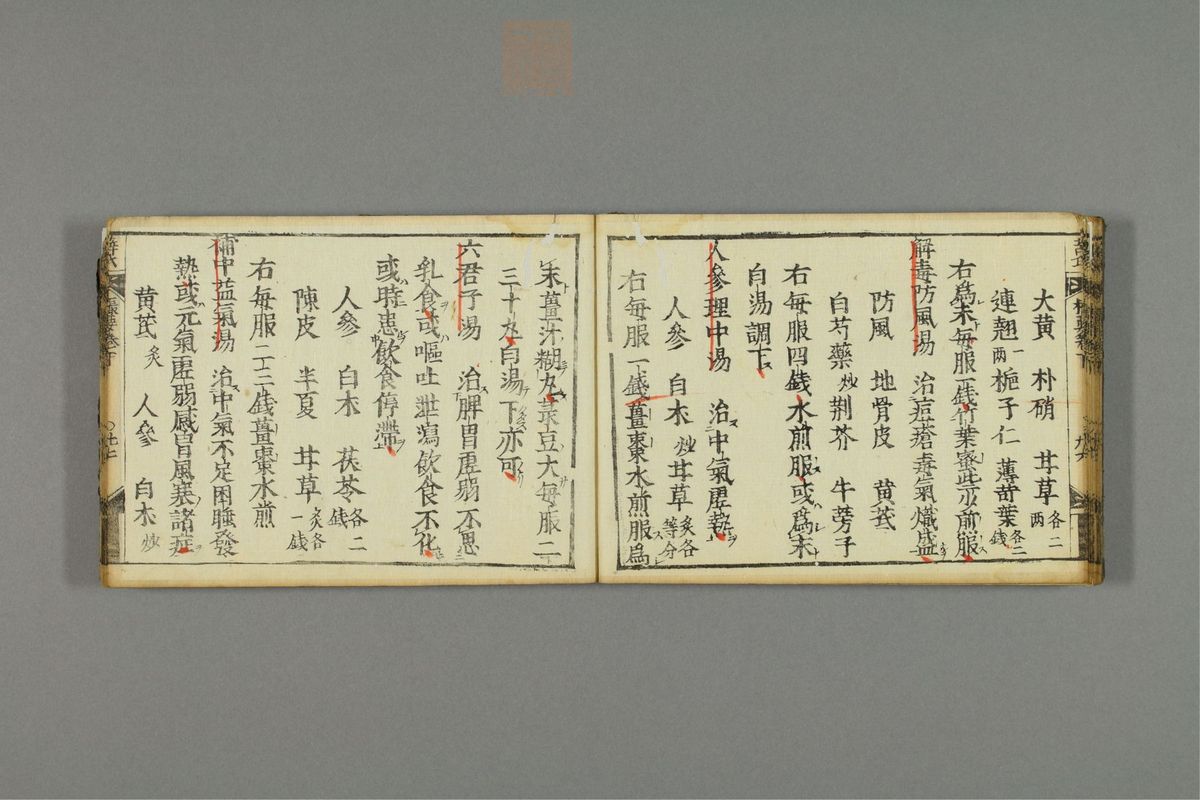 大黄 朴硝 甘草各二两
連翹一两 梔子仁 薄苛葉各二錢
右為末每服二錢竹葉蜜些水煎服
解毒防風湯 治痘瘡毒氣熾盛
防風 地骨皮 黄芪
白芍藥炒 荆芥 牛蒡子
右每服四錢水煎服或為末
白湯調下
人參理中湯 治中氣虚熱
人參 白朮炒 甘草炙各等分
右每服一錢薑棗水煎服為
末薑汁糊丸菉豆大每服二
三十丸白湯下亦可
六君子湯 治脾胃虚弱不思
乳食或嘔吐泄瀉飲食不化
或時患飲食停滯
人參 白朮 茯苓各二錢
陳皮 半夏 甘草炙各一錢
右每服二三錢薑棗水煎
補中益氣湯 治中氣不足困睡發
熱或元氣虚弱感冒風寒諸症
黄芪炙 人參 白朮炒